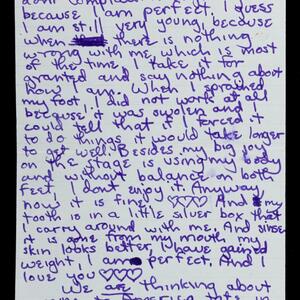 dont complain
because I am perfect, I guess
I am still very young, because
when there is nothing
wrong with me which is most
of the time I take it for
granted and say nothing about
how I am. When I sprained
my foot, I did not work at all
because it was swolen and I
could tell that if I forced it
to do things it would take longer
to get well. Besides my big joy
on the stage is using my body
and without balance - both
feet, I dont enjoy it. Anyway
now it is fine ♡♡♡ And my
tooth is in a little silver box that
I carry around with me. And sinse
it is gone from my mouth my
skin looks better, I have gained
weight, I am perfect, And I
love you ♡♡♡
We are thinking about